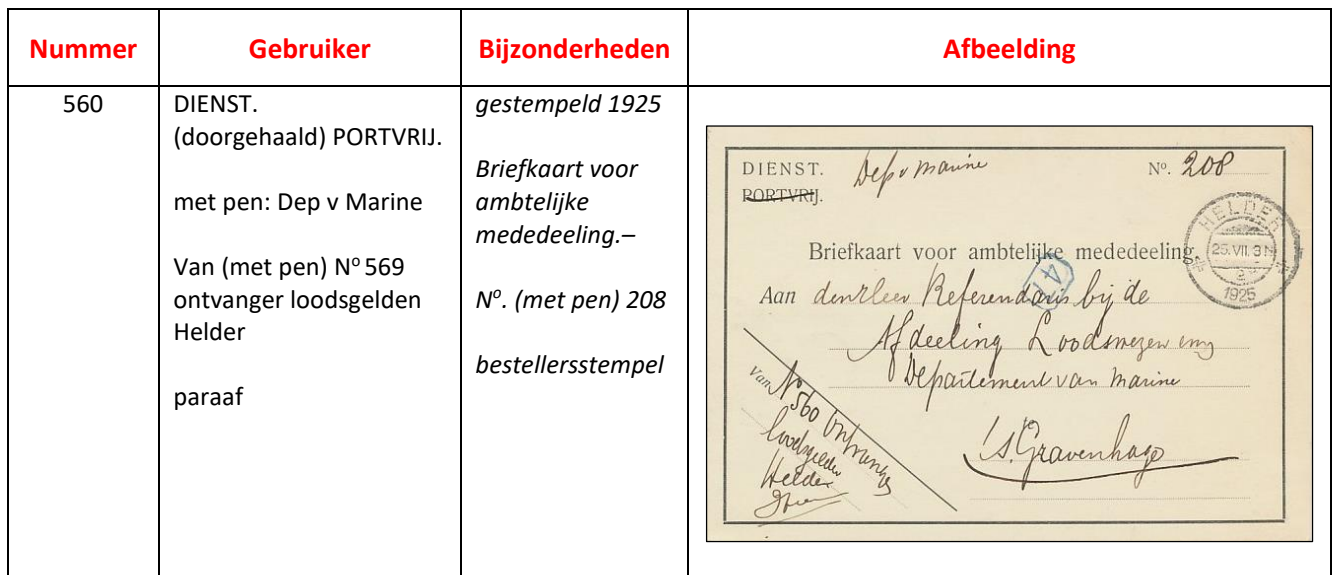 Nummer
Gebruiker
Bijzonderheden
Afbeelding
560
DIENST.
(doorgehaald) PORTVRIJ.
met pen: Dep v Marine
Van (met pen) Nº 569
ontvanger loodsgelden
Helder
paraaf
gestempeld 1925
Briefkaart voor
ambtelijke
mededeeling.–
Nº. (met pen) 208
bestellersstempel
DIENST. Dep v Marine Nº. 208
PORTVRIJ.
HELDER
25.VII.3N
2
1925
Briefkaart voor ambtelijke mededeeling.
41
Aan den Heer Referendaris bij de
Afdeeling Loodswezen
Departement van Marine
's Gravenhage
Van Nº 560 Ontvanger
loodsgelden
Helder